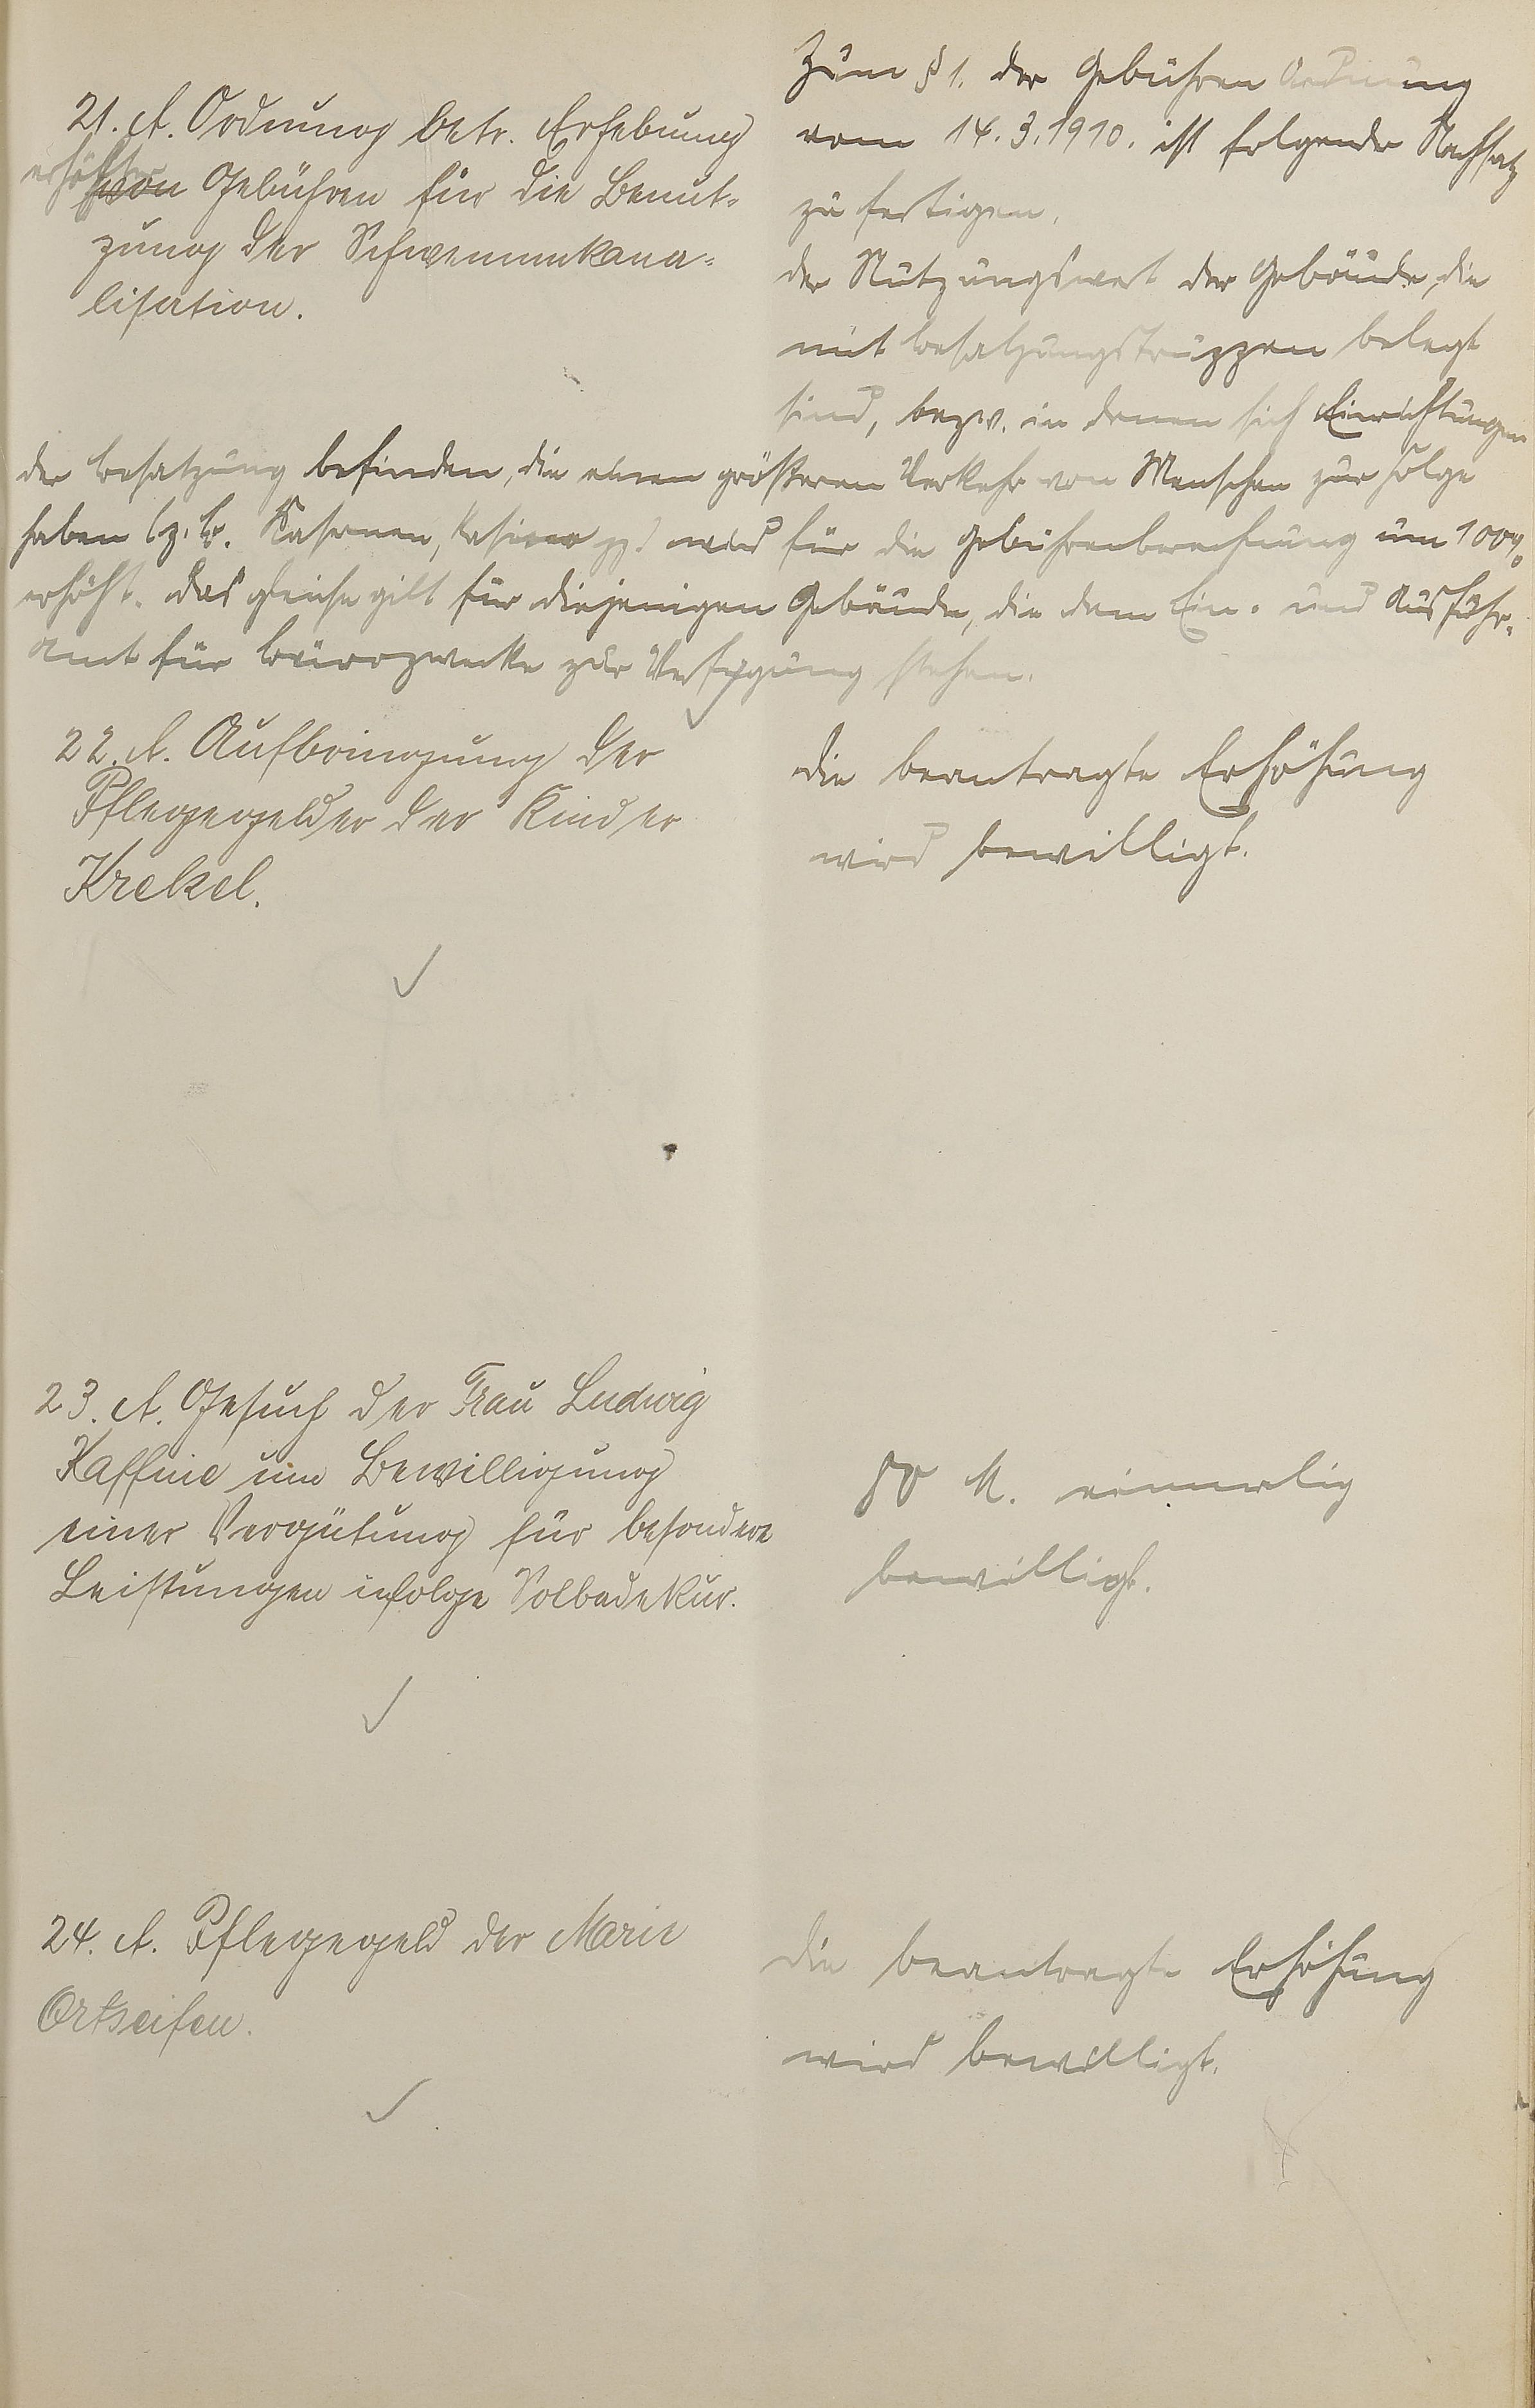 21. A. Ordnung betr. Erhebung
erhöhter Gebühren für die Benut-
zung der Schwemmkana-
lisation.
Zum § 1. der Gebühren Ordnung
vom 14.3.1910. ist folgender Nachsatz
zu fertigen.
der Nutzungswert der Gebäude, die
mit Besatzungstruppen belegt
sind, bezw. in denen sich Einrichtungen
der Besatzung befinden, die einen größeren Verkehr von Menschen zur Folge
haben (z.B. Kasernen, Kasino pp.) wird für die Gebührenberechnung um 100%
erhöht. das gleiche gilt für diejenigen Gebäude, die dem Ein- und Ausfuhr-
amt für Bürozwecke zur Verfügung stehen.
22. A. Aufbringung der
Pflegegelder der Kinder
Krekel.
die beantragte Erhöhung
wird bewilligt.
23. A. Gesuch der Frau Ludwig
Kaffine um Bewilligung
einer Vergütung für besondere
Leistungen infolge Solbadekur.
50 M. einmalig
bewilligt.
24. A. Pflegegeld der Marie
Ortseifen.
die beantragte Erhöhung
wird bewilligt.